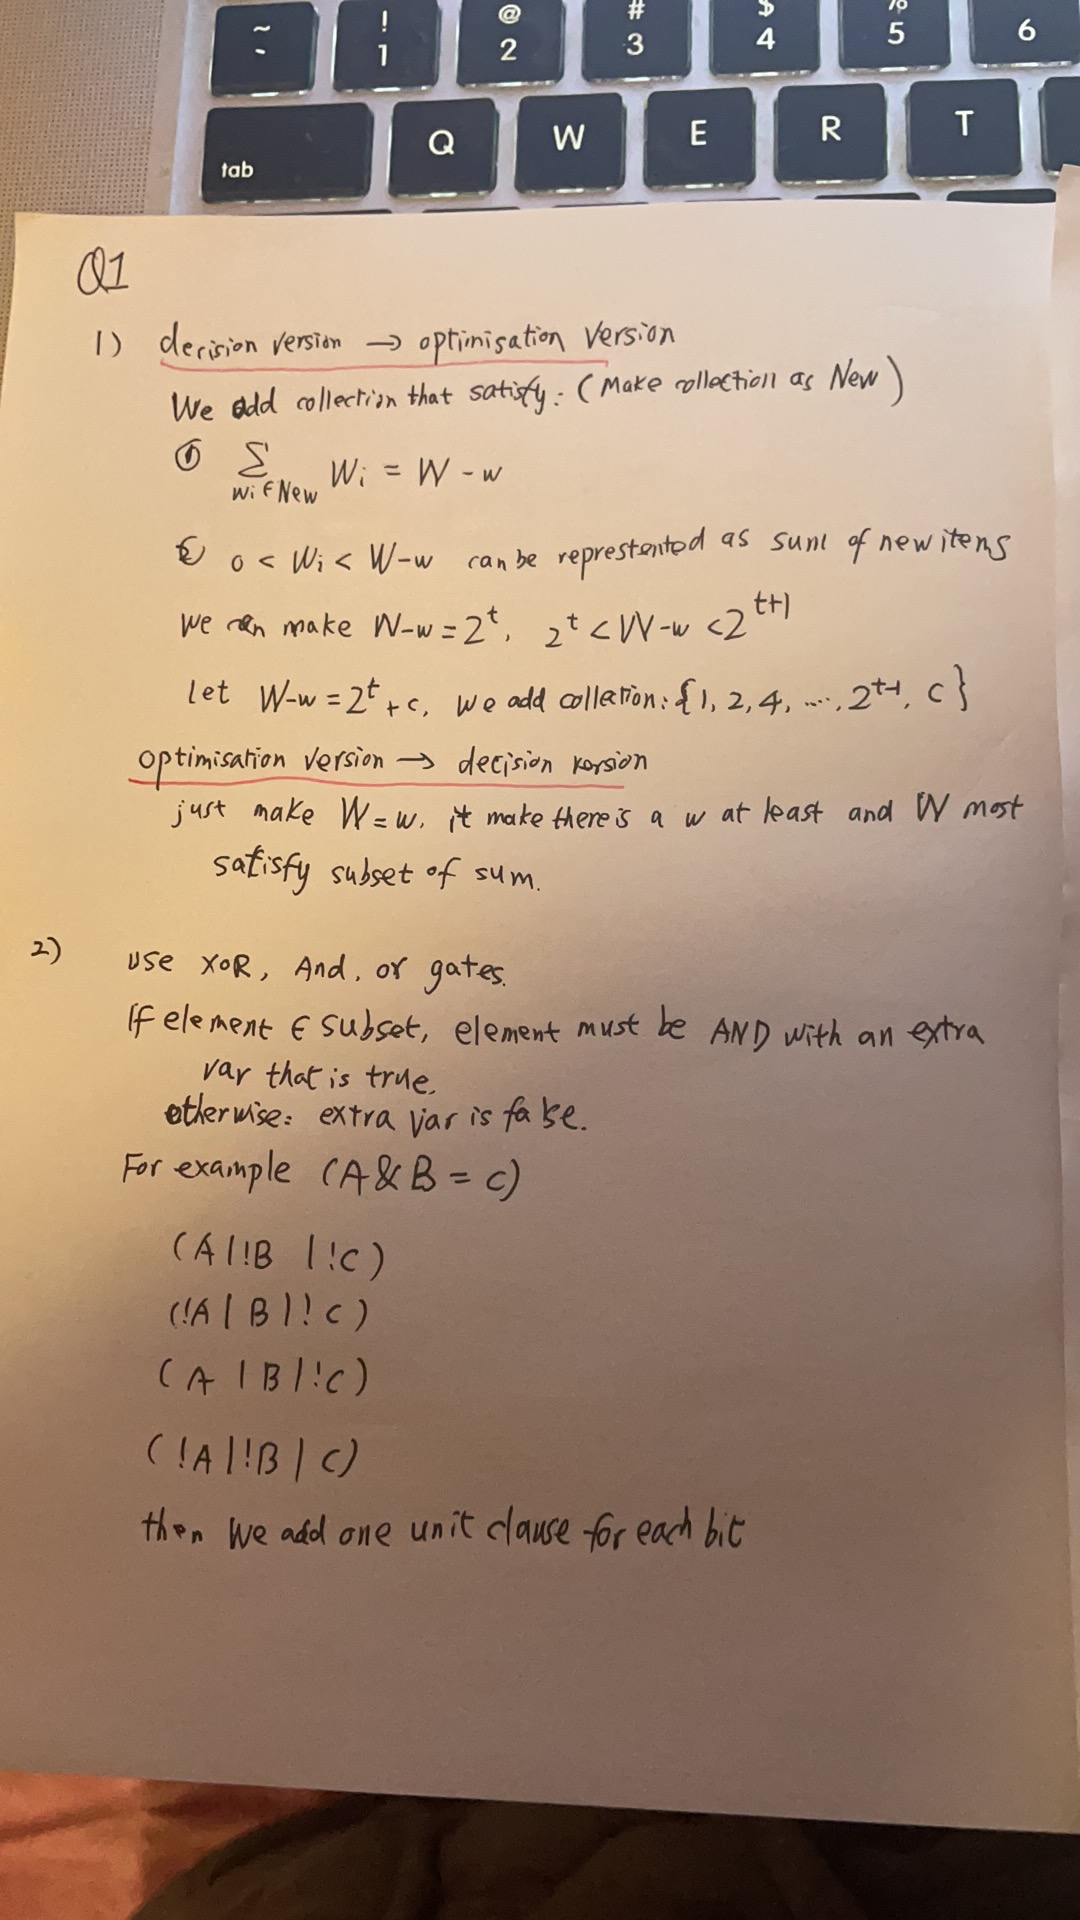 ~ ! @ # $ % 
` 1 2 3 4 5 6
tab Q W E R T
Q1
1) decision version → optimisation version
We add collection that satisfy: (Make collection as New)
① Σ Wi = W - w
wi ∈ New
② 0 < Wi < W-w can be represtented as sum of new items
We can make W-w = 2^t, 2^t < W-w < 2^{t+1}
Let W-w = 2^t + c, we add collection: {1, 2, 4, ...., 2^{t-1}, c}
optimisation version → decision version
just make W = w, it make there is a w at least and W most
satisfy subset of sum.
2) use XOR, And, or gates.
If element ∈ subset, element must be AND with an extra
var that is true.
otherwise: extra var is false.
For example (A & B = C)
(A | !B | !C)
(!A | B | !C)
(A | B | !C)
(!A | !B | C)
then We add one unit clause for each bit